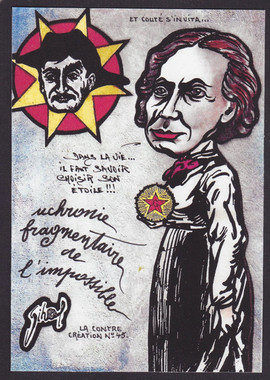 ET COUTE S'INVITA...
DANS LA VIE...
IL FAUT SAVOIR
CHOISIR SON
ÉTOILE !!!
uchronie
fragmentaire
de
l'impossible
LA CONTRE
CRÉATION N° 45.